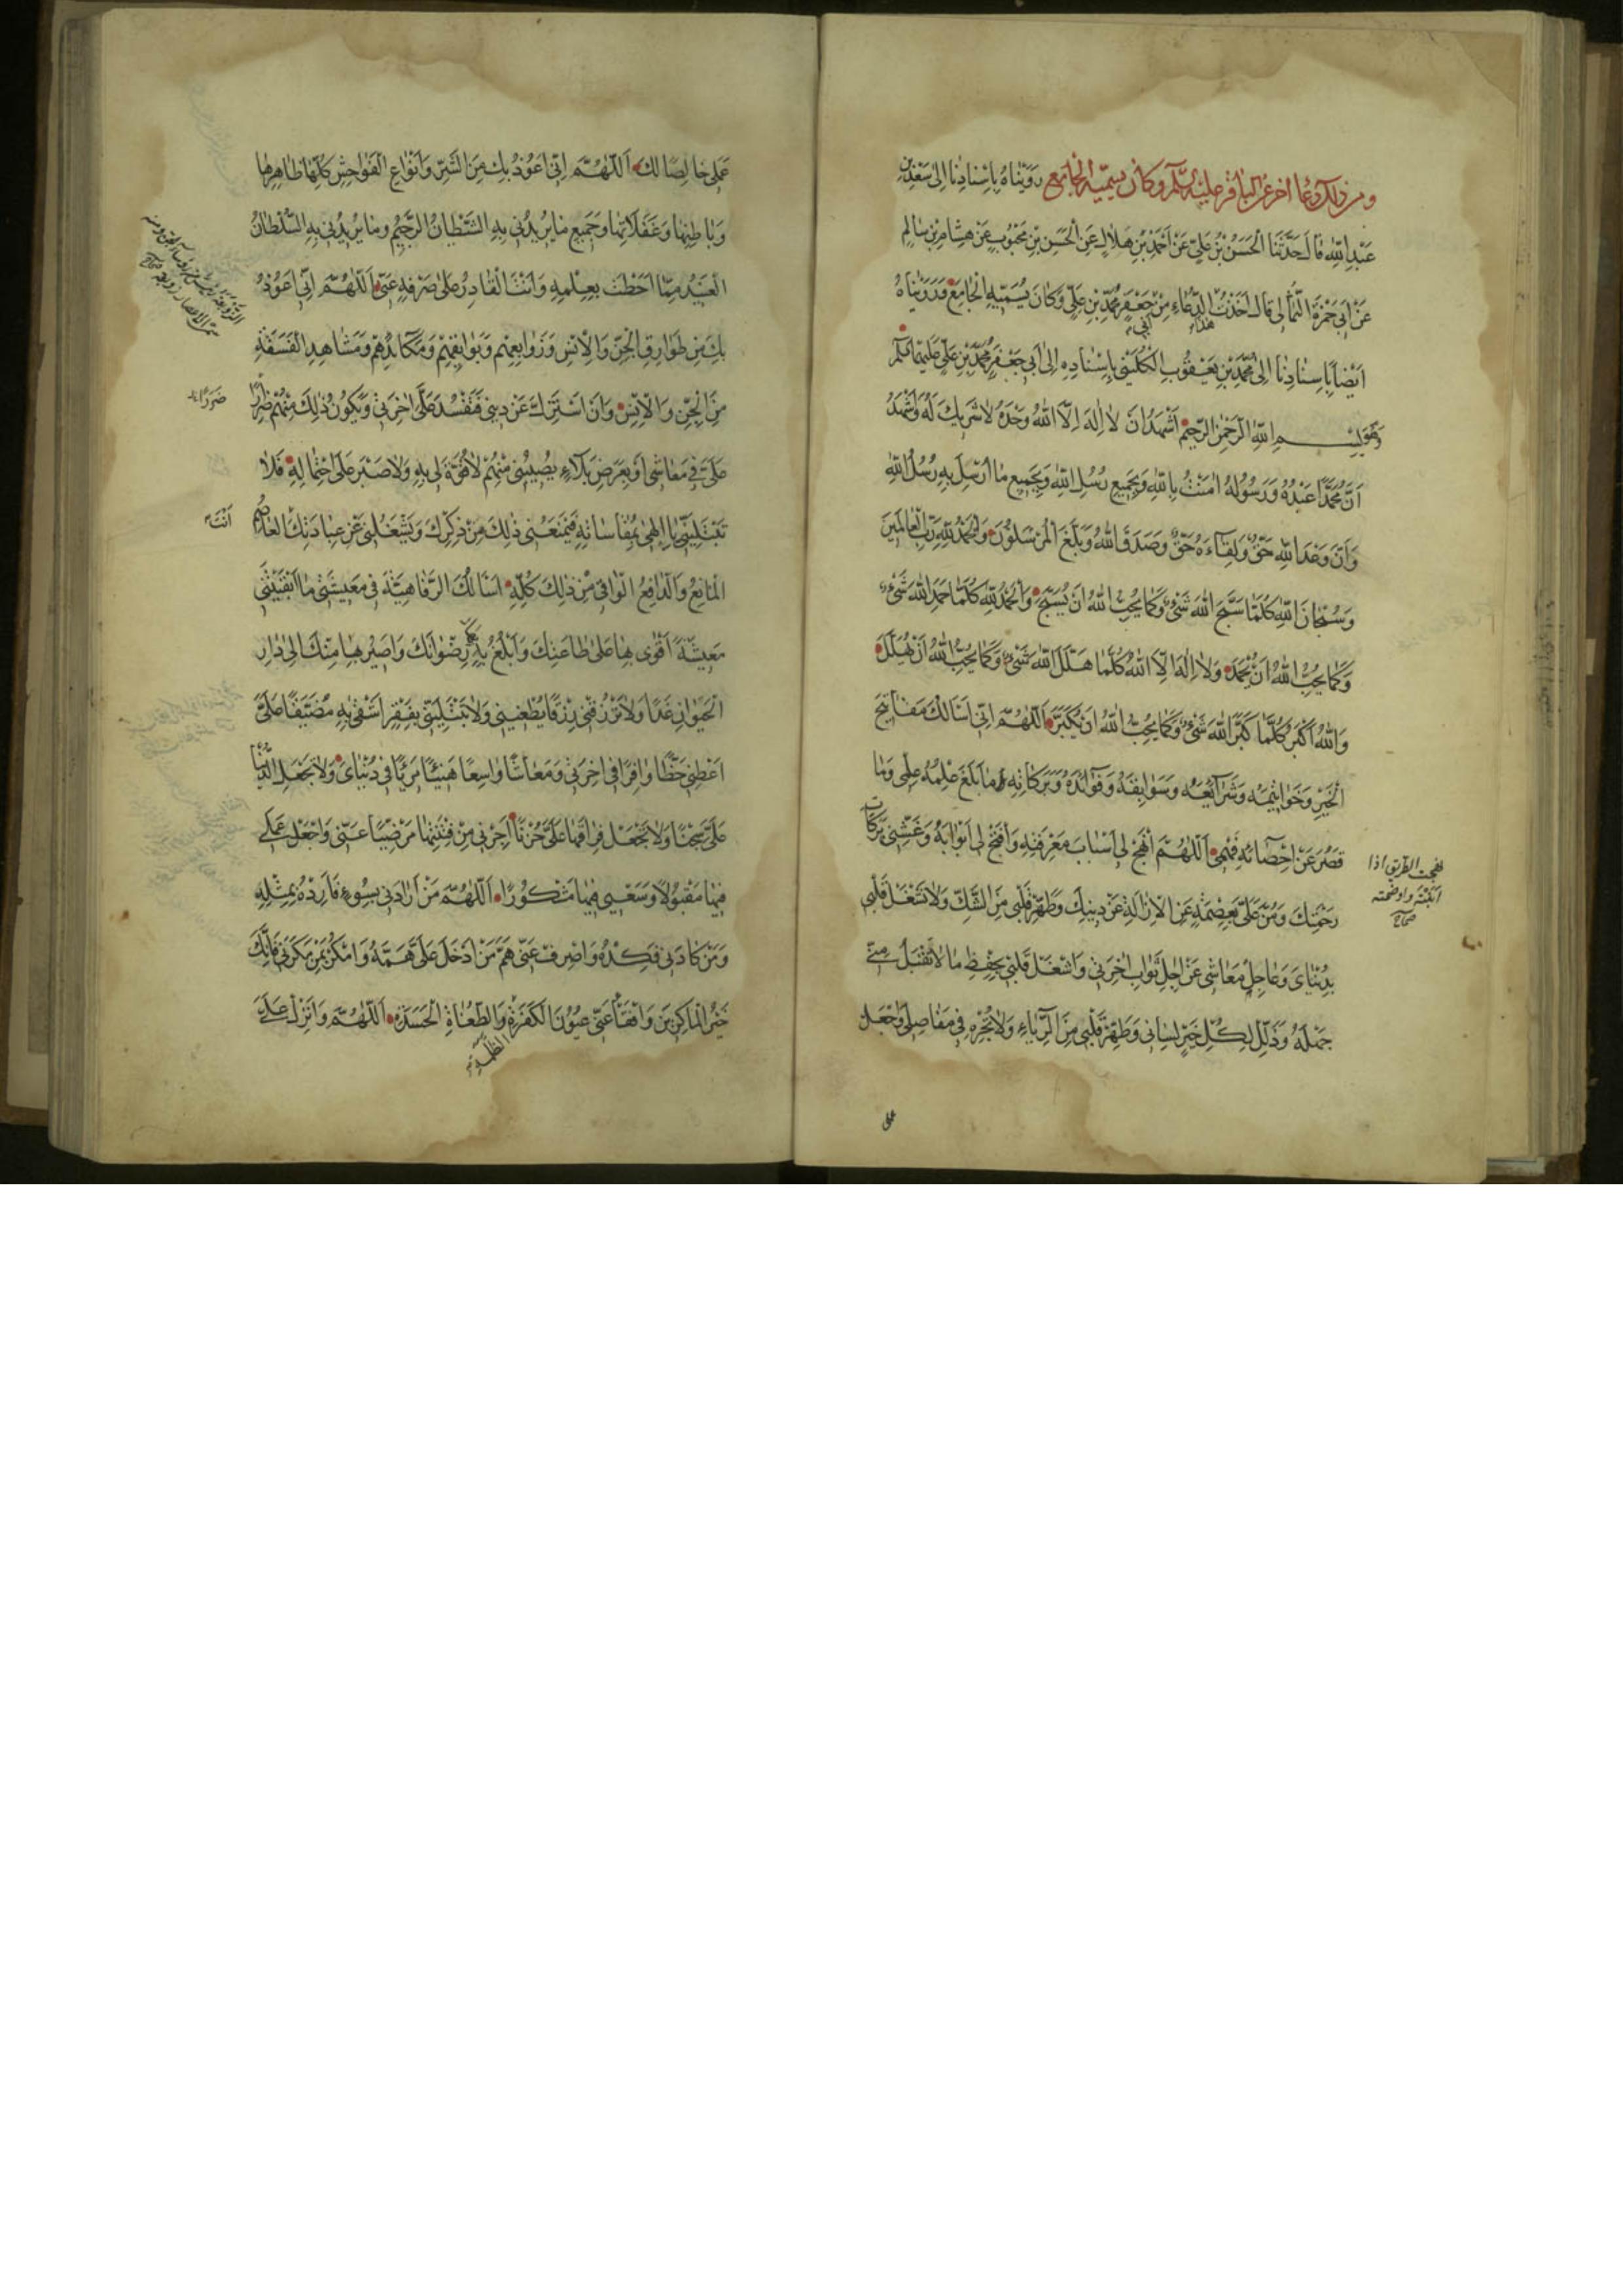 ومن ذلك دعاء اخر عن الباقر عليه السلم وكان يسميه الجامع رَوَيْنَاهُ بِاِسْنَادِنَا اِلىٰ سَعْدِبْنِ
عَبْدِ اللّٰهِ قَالَ حَدَّثَنَا الْحَسَنُ بْنُ عَلِيٍّ عَنْ اَحْمَدَ بْنِ هِلَالٍ عَنِ الْحَسَنِ بْنِ مَحْبُوبٍ عَنْ هِشَامِ بْنِ سَالِمٍ
عَنْ اَبِي حَمْزَةَ الثُّمَالِي قَالَ اَخَذْتُ الدُّعَاءِ مِنْ جَعْفَرٍ مُحَمَّدِ بْنِ عَلِيٍّ وَكَانَ يُسَمِّيهِ الْجَامِعَ وَرَوَيْنَاهُ
هذا
ابى
اَيْضاً بِاِسْنَادِنَا اِلىٰ مُحَمَّدِ بْنِ يَعْقُوبَ الْكُلَيْنِي بِاِسْنَادِهِ اِلىٰ اَبِي جَعْفَرٍ مُحَمَّدِ بْنِ عَلِيٍّ عَلَيْهِمَا السَّلَم
وَهُوَ بِسْمِ اللّٰهِ الرَّحْمٰنِ الرَّحِيمِ اَشْهَدُ اَنْ لَا اِلٰهَ اِلَّا اللّٰهُ وَحْدَهُ لَا شَرِيكَ لَهُ وَاَشْهَدُ
اَنَّ مُحَمَّدًا عَبْدُهُ وَرَسُولُهُ اٰمَنْتُ بِاللّٰهِ وَبِجَمِيعِ رُسُلِ اللّٰهِ وَبِجَمِيعِ مَا اُرْسِلَ بِهِ رُسُلُ اللّٰهِ
وَاَنَّ وَعْدَ اللّٰهِ حَقٌّ وَلِقَاءَهُ حَقٌّ وَصَدَقَ اللّٰهُ وَبَلَّغَ الْمُرْسَلُونَ وَالْحَمْدُ لِلّٰهِ رَبِّ الْعَالَمِينَ
وَسُبْحَانَ اللّٰهِ كُلَّمَا سَبَّحَ اللّٰهَ شَيْءٌ وَكَمَا يُحِبُّ اللّٰهُ اَنْ يُسَبَّحَ وَالْحَمْدُ لِلّٰهِ كُلَّمَا حَمِدَ اللّٰهَ شَيْءٌ
وَكَمَا يُحِبُّ اللّٰهُ اَنْ يُحْمَدَ وَلَا اِلٰهَ اِلَّا اللّٰهُ كُلَّمَا هَلَّلَ اللّٰهَ شَيْءٌ وَكَمَا يُحِبُّ اللّٰهُ اَنْ يُهَلَّلَ
وَاللّٰهُ اَكْبَرُ كُلَّمَا كَبَّرَ اللّٰهَ شَيْءٌ وَكَمَا يُحِبُّ اللّٰهُ اَنْ يُكَبَّرَ اَللّٰهُمَّ اِنِّي اَسْاَلُكَ مَفَاتِيحَ
الْخَيْرِ وَخَوَاتِيمَهُ وَشَرَايِعَهُ وَسَوَابِقَهُ وَفَوَائِدَهُ وَبَرَكَاتِهِ وَمَا بَلَغَ عِلْمُهُ عِلْمِي وَمَا
قَصُرَ عَنْ اِحْصَائِهِ فَهْمِي اَللّٰهُمَّ انْهَجْ لِي اَسْبَابَ مَعْرِفَتِهِ وَافْتَحْ لِي اَبْوَابَهُ وَغَشِّنِي بَرَكَاتِ
نهجت الطريق اذا
ابنته واوضحته
صحاح
رَحْمَتِكَ وَمُنَّ عَلَيَّ بِعِصْمَةٍ عَنِ الْاِزَالَةِ عَنْ دِينِكَ وَطَهِّرْ قَلْبِي مِنَ الشَّكِّ وَلَا تَشْغَلْ قَلْبِي
بِدُنْيَايَ وَعَاجِلِ مَعَاشِي عَنْ اٰجِلِ ثَوَابِ اٰخِرَتِي وَاشْغَلْ قَلْبِي بِحِفْظِ مَا لَا تَقْبَلُ مِنِّي
جَهْلَهُ وَذَلِّلْ لِكُلِّ خَيْرٍ لِسَانِي وَطَهِّرْ قَلْبِي مِنَ الرِّيَاءِ وَلَا تُجْرِهِ فِي مَفَاصِلِي وَاجْعَلْ
عملى
عَمَلِي خَالِصًا لَكَ اَللّٰهُمَّ اِنِّي اَعُوذُ بِكَ مِنَ الشَّرِّ وَاَنْوَاعِ الْفَوَاحِشِ كُلِّهَا ظَاهِرِهَا
وَبَاطِنِهَا وَغَفَلَاتِهَا وَجَمِيعِ مَا يُرِيدُنِي بِهِ الشَّيْطَانُ الرَّجِيمُ وَمَا يُرِيدُنِي بِهِ السُّلْطَانُ
الْعَنِيدُ مِمَّا اَحَطْتَ بِعِلْمِهِ وَاَنْتَ الْقَادِرُ عَلىٰ صَرْفِهِ عَنِّي اَللّٰهُمَّ اِنِّي اَعُوذُ
بِكَ مِنْ طَوَارِقِ الْجِنِّ وَالْاِنْسِ وَزَوَابِعِهِمْ وَبَوَائِقِهِمْ وَمَكَائِدِهِمْ وَمَشَاهِدِ الْفَسَقَةِ
مِنَ الْجِنِّ وَالْاِنْسِ وَاَنْ اُسْتَزَلَّ عَنْ دِينِي فَتَفْسُدَ عَلَيَّ اٰخِرَتِي وَيَكُونُ ذٰلِكَ مِنْهُمْ ضَرَرًا
ضررًا
عَلَيَّ فِي مَعَاشِي اَوْ بِعَرَضِ بَلَاءٍ يُصِيبُنِي مِنْهُمْ لَا قُوَّةَ لِي بِهِ وَلَا صَبْرَ عَلَى احْتِمَالِهِ فَلَا
تَبْتَلِيَنِّي يَا اِلٰهِي بِمُقَاسَاتِهِ فَيَمْنَعُنِي ذٰلِكَ مِنْ ذِكْرِكَ وَيَشْغَلُنِي عَنْ عِبَادَتِكَ الْعَاصِمُ
اَنْتَ
الْمَانِعُ وَالدَّافِعُ الْوَاقِي مِنْ ذٰلِكَ كُلِّهِ اَسْاَلُكَ الرَّفَاهِيَةَ فِي مَعِيشَتِي مَا اَبْقَيْتَنِي
مَعِيشَةً اَقْوىٰ بِهَا عَلىٰ طَاعَتِكَ وَاَبْلُغُ بِهَا رِضْوَانَكَ وَاَصِيْرُ بِهَا مِنْكَ اِلىٰ دَارِ
الْحَيَوَانِ غَدًا وَلَا تَرْزُقْنِي رِزْقًا يُطْغِينِي وَلَا تَبْتَلِيَنِّي بِفَقْرٍ اَشْقىٰ بِهِ مُضَيَّقًا عَلَيَّ
اَعْطِنِي حَظًّا وَافِرًا فِي اٰخِرَتِي وَمَعَاشًا وَاسِعًا هَنِيئًا مَرِيًّا فِي دُنْيَايَ وَلَا تَجْعَلِ الدُّنْيَا
عَلَيَّ سِجْنًا وَلَا تَجْعَلْ فِرَاقَهَا عَلَيَّ حُزْنًا اَجِرْنِي مِنْ فِتْنَتِهَا مَرْضِيًّا عَنِّي وَاجْعَلْ عَمَلِي
فِيهَا مَقْبُولًا وَسَعْيِي فِيهَا مَشْكُورًا اَللّٰهُمَّ مَنْ اَرَادَنِي بِسُوءٍ فَاَرِدْهُ بِمِثْلِهِ
وَمَنْ كَادَنِي فَكِدْهُ وَاصْرِفْ عَنِّي هَمَّ مَنْ اَدْخَلَ عَلَيَّ هَمَّهُ وَامْكُرْ بِمَنْ مَكَرَنِي فَاِنَّكَ
خَيْرُ الْمَاكِرِينَ وَافْقَأْ عَنِّي عُيُونَ الْكَفَرَةِ وَالطُّغَاةِ الْحَسَدَةِ اَللّٰهُمَّ وَاَنْزِلْ عَلَيَّ
الظلمة